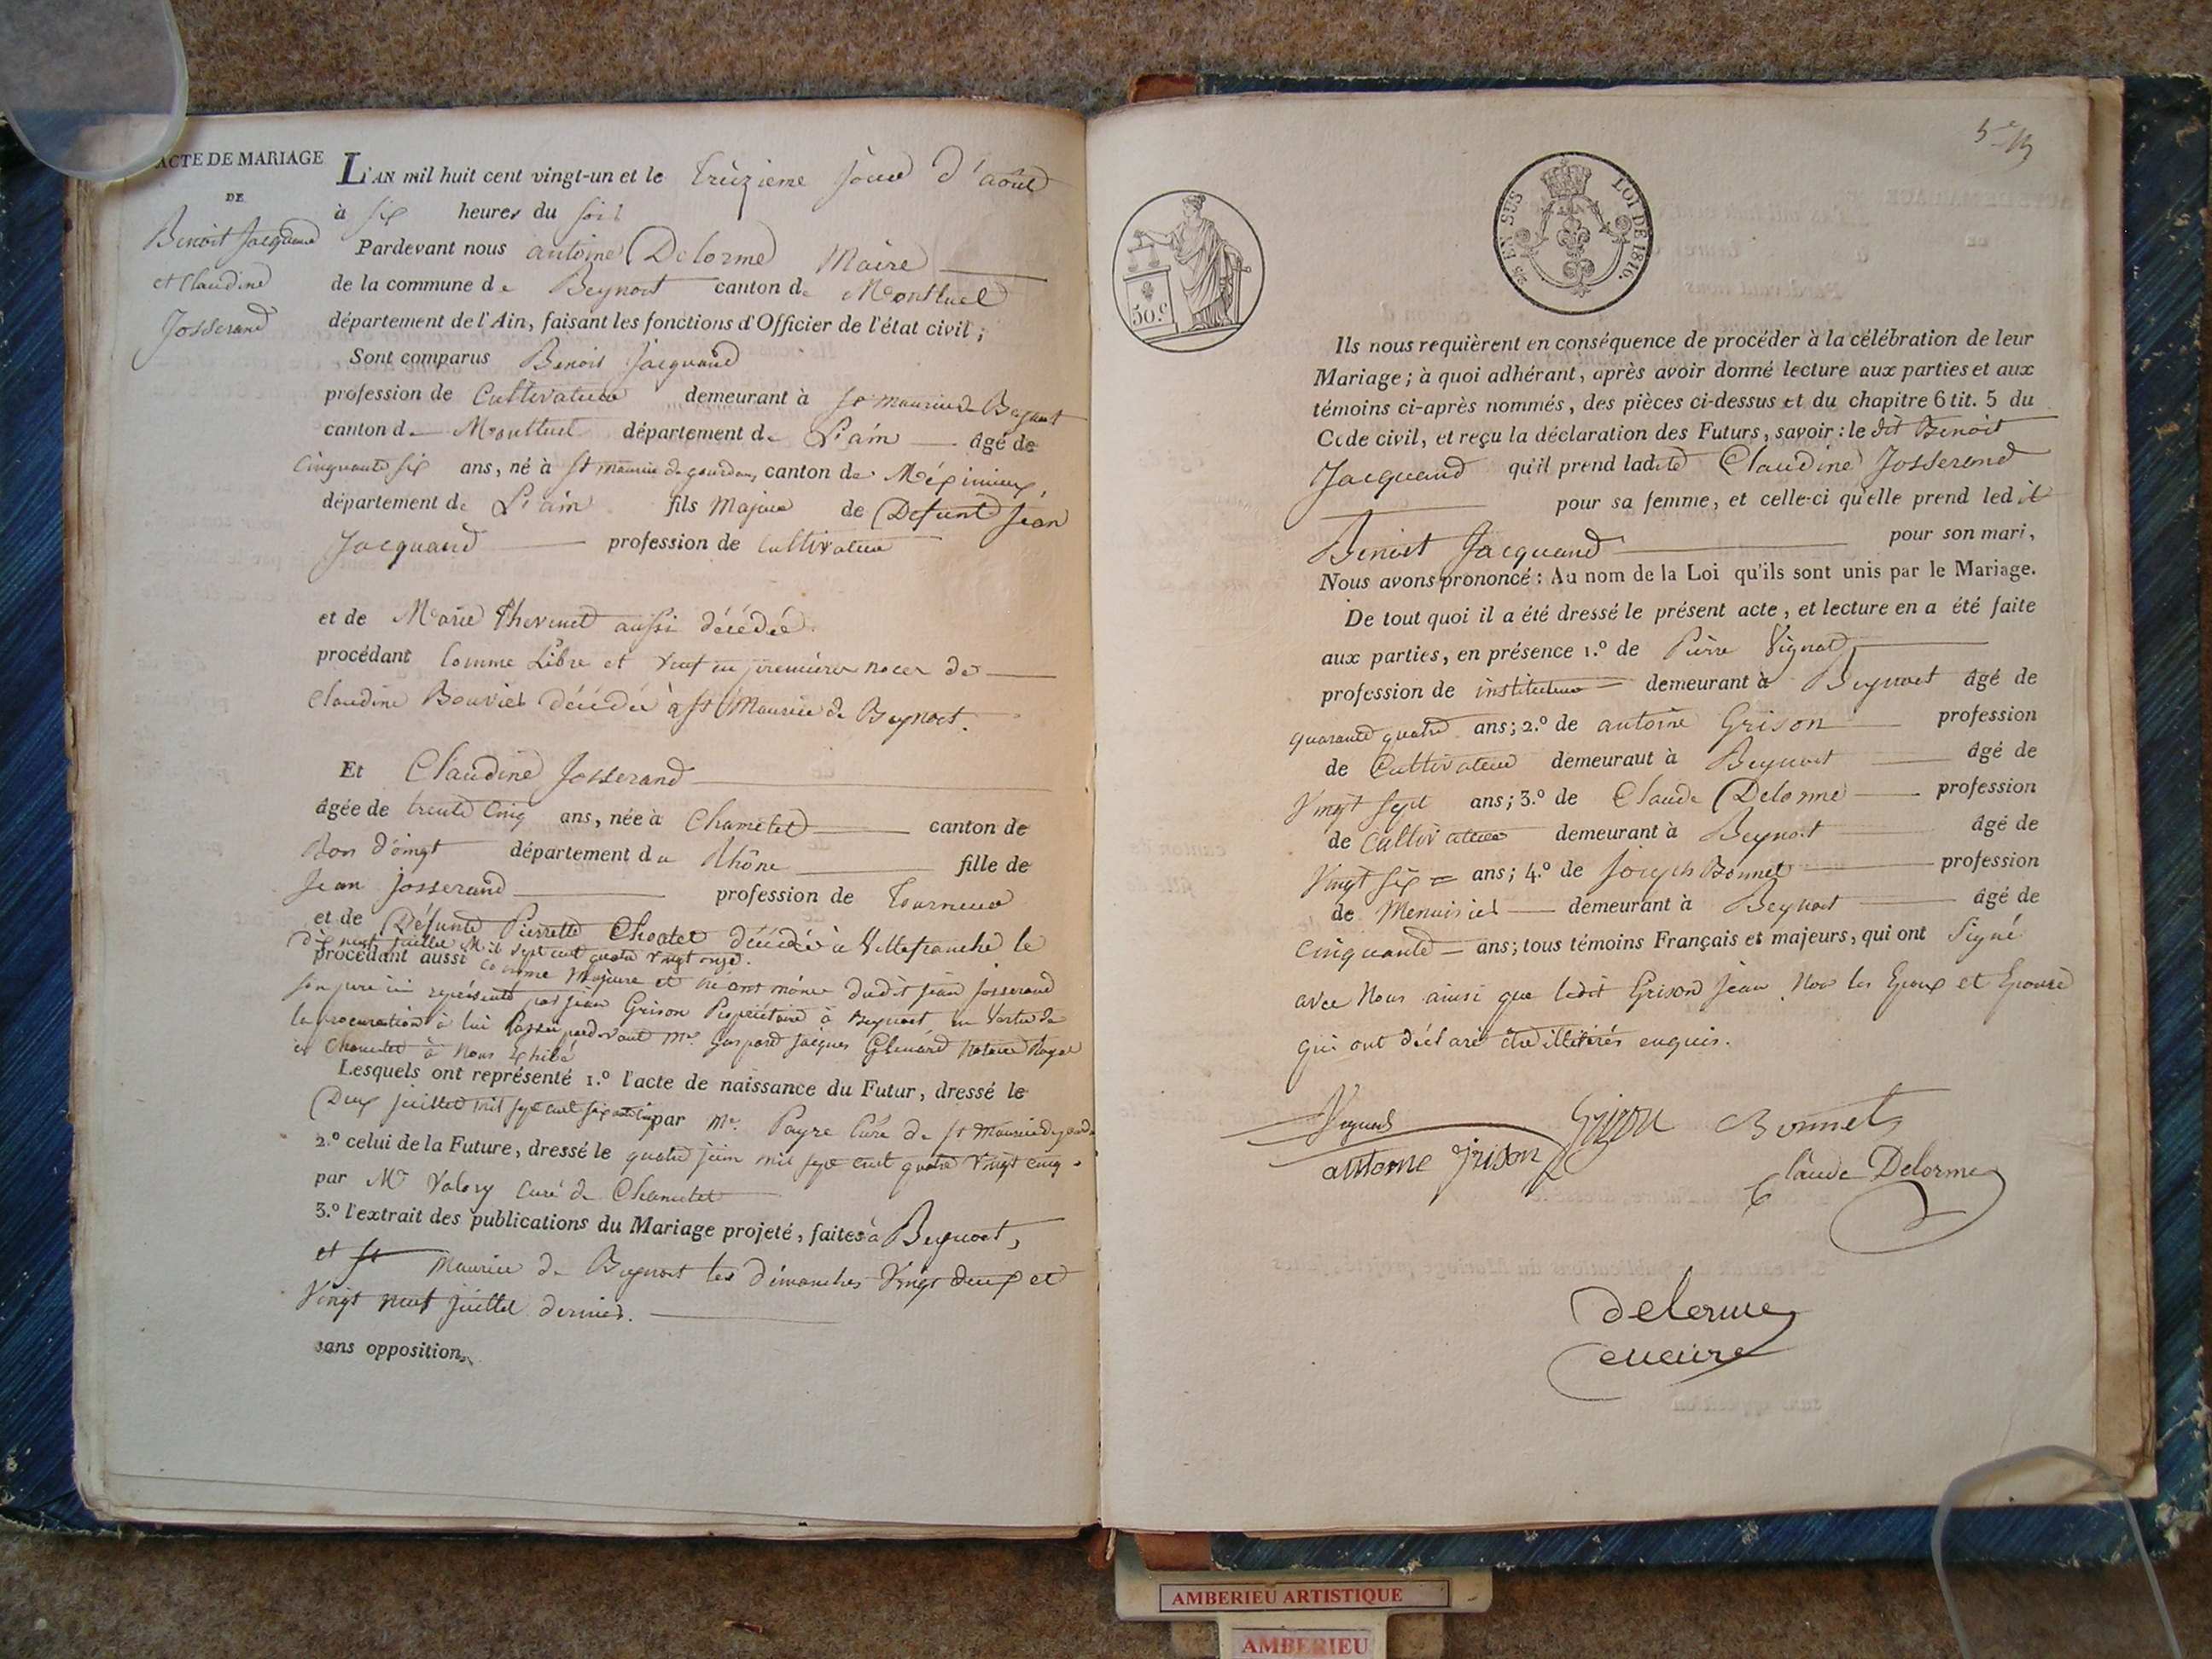 ACTE DE MARIAGE
DE
Benoit Jacquand
et Claudine
Josserand
L'AN mil huit cent vingt-un et le treizieme jour d'août
à six heures du soir
Pardevant nous antoine Delorme Maire
de la commune de Beynost canton de Montluel
département de l'Ain, faisant les fonctions d'Officier de l'état civil;
Sont comparus Benoit Jacquand
profession de Cultivateur demeurant à St maurice de Beynost
canton de Montluel département de L'ain âgé de
Cinquante six ans, né à St maurice de gourdans, canton de Méximieux,
département de L'ain fils Majeur de Defunt Jean
Jacquand profession de Cultivateur
et de Marie Thevenet aussi décédée
procédant Comme Libre et veuf en premieres noces de
Claudine Bouvier décédée à St Maurice de Beynost.
Et Claudine Josserand
âgée de trente cinq ans, née à Chamelet canton de
Bois d'oingt département du Rhône fille de
Jean Josserand profession de Tourneur
et de Défunte Pierrette décédée à Villefranche le
dix neuf juillet Mil sept cent quatre vingt onze.
procédant aussi comme Majeure et dudit jean josserand
son pere ici représenté par jean Grison Propriétaire à Beynost en vertu de
la procuration à lui Passée pardevant Me. Gaspard Jacques notaire Royal
à Chamelet à Nous Exhibé
Lesquels ont représenté 1.º l'acte de naissance du Futur, dressé le
Deux juillet mil sept cent soixante cinq par Mr. Payre Curé de St Maurice de gourdans
2.º celui de la Future, dressé le quatre juin mil sept cent quatre vingt cinq
par Mr Valory curé de Chamelet
3.º l'extrait des publications du Mariage projeté, faites à Beynost,
et St Maurice de Beynost les dimanches Vingt deux et
Vingt neuf juillet dernier.
sans opposition.
50 c.
25 EN SUS
LOI DE 1816.
Ils nous requièrent en conséquence de procéder à la célébration de leur
Mariage; à quoi adhérant, après avoir donné lecture aux parties et aux
témoins ci-après nommés, des pièces ci-dessus et du chapitre 6 tit. 5 du
Code civil, et reçu la déclaration des Futurs, savoir: le dit Benoit
Jacquand qu'il prend ladite Claudine Josserand
pour sa femme, et celle-ci qu'elle prend ledit
Benoit Jacquand pour son mari,
Nous avons prononcé: Au nom de la Loi qu'ils sont unis par le Mariage.
De tout quoi il a été dressé le présent acte, et lecture en a été faite
aux parties, en présence 1.º de Pierre Vignat
profession de instituteur demeurant à Beynost âgé de
quarante quatre ans; 2.º de antoine Grison profession
de Cultivateur demeurant à Beynost âgé de
Vingt sept ans; 3.º de Claude Delorme profession
de Cultivateur demeurant à Beynost âgé de
Vingt six ans; 4.º de Joseph Bonnet profession
de Menuisier demeurant à Beynost âgé de
cinquante ans; tous témoins Français et majeurs, qui ont Signé
avec Nous ainsi que ledit Grison Jean. Non les Epoux et Epouse
qui ont déclaré être illitérés enquis.
Vignat Grizon Bonnet
antome grison
Claude Delorme
delorme
maire
AMBERIEU ARTISTIQUE
AMBERIEU